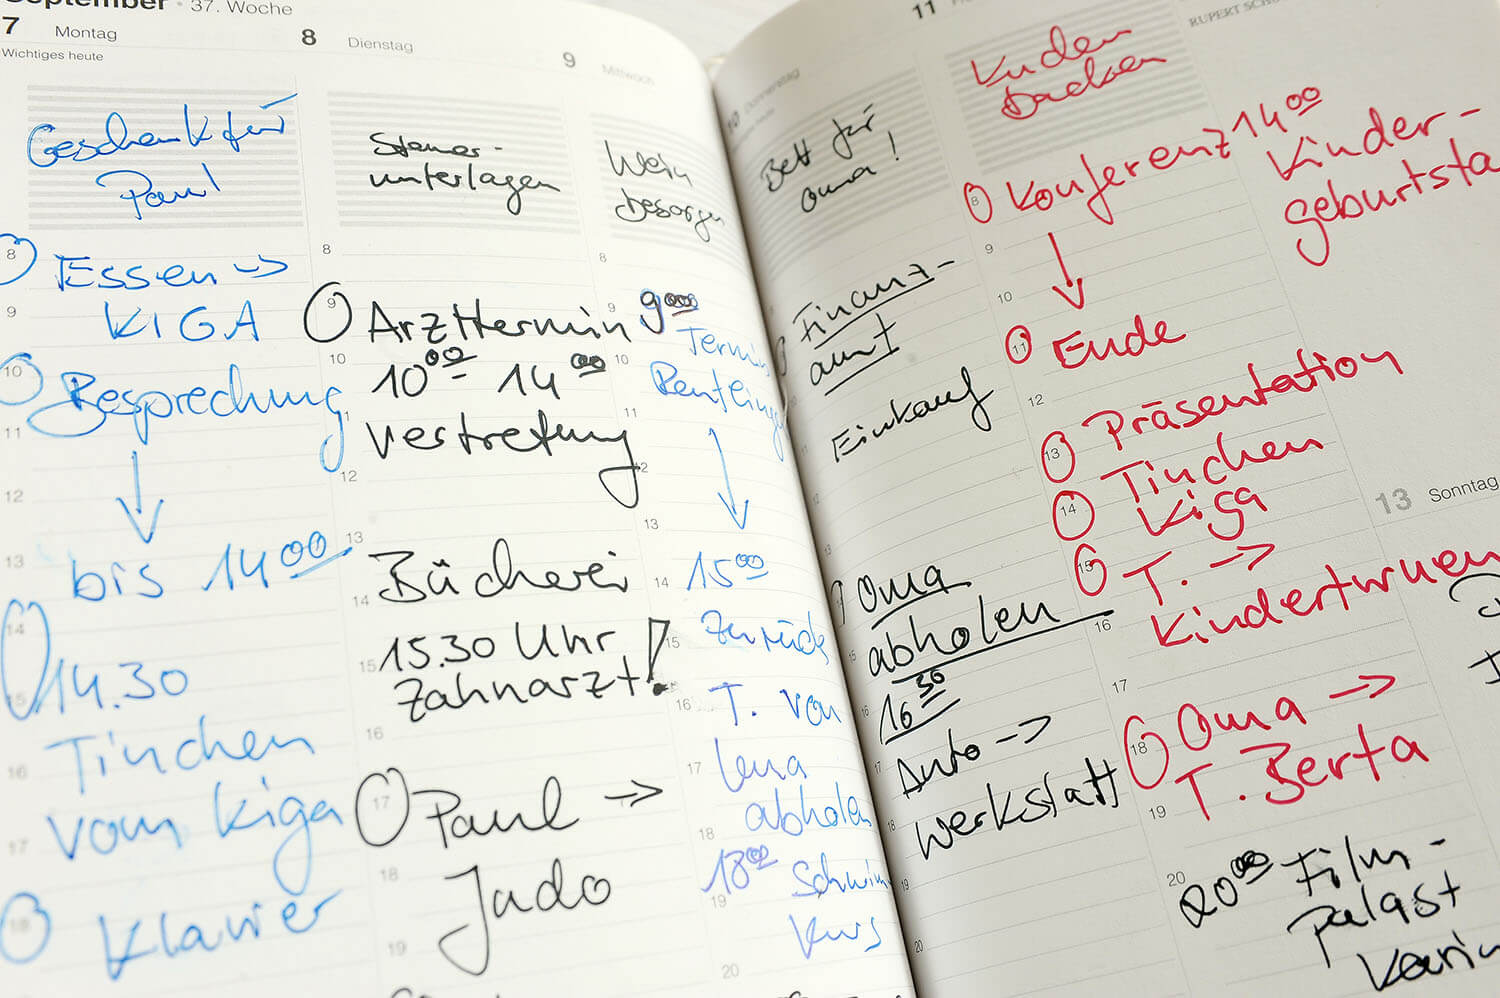 September · 37. Woche
7 Montag
Wichtiges heute
Geschenk für
Paul
8
Essen →
9
KIGA
10
Besprechung
11
12
13
bis 14 00
14
14.30
15
Tinchen
16
vom Kiga
17
18
Klavier
8 Dienstag
Steuer-
unterlagen
8
9
Arzttermin
10
10 00 14 00
11
Vertretung
12
13
Bücherei
14
15.30 Uhr
15
Zahnarzt!
16
17
Paul →
18
Judo
19
9 Mittwoch
Wein
besorgen
8
9
9 00
Termin
10
11
12
13
14
15 00
15
Zurück
16
T. von
17
Lena
abholen
18
18 00 Schwimm
19
Kurs
20
10 Donnerstag
Bett für
Oma!
Finanz-
amt
Einkauf
12
13
Oma
15
abholen
16
16 30
17
Auto →
18
Werkstatt
19
20
11
Kuchen
backen
8
Konferenz
9
10
11
Ende
12
Präsentation
13
Tinchen
14
Kiga
15
T. →
Kinderturnen
16
17
18
Oma →
T. Berta
19
20
20 00 Film-
palast
Karin
RUPERT
14 00
Kinder-
geburtsta
13 Sonntag